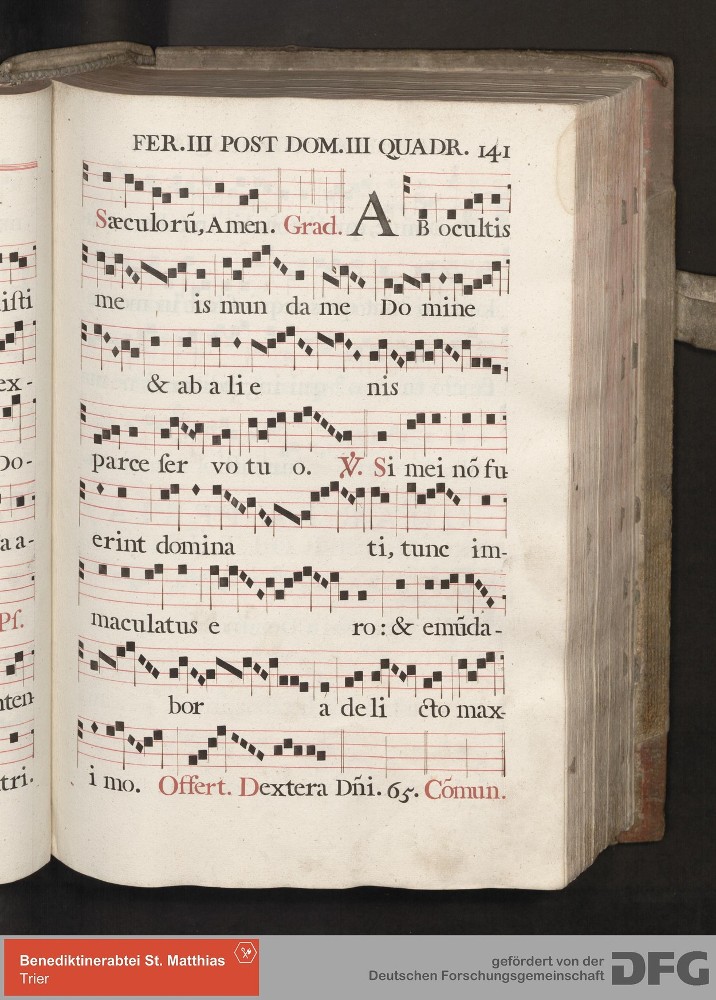 FER.III POST DOM.III QUADR. 141
Sæculorũ, Amen. Grad. AB ocultis
me is mun da me Do mine
& ab a li e nis
parce ser vo tu o. ℣. Si mei nõ fu
erint domina ti, tunc im-
maculatus e ro: & emũda-
bor a de li cto max-
i mo. Offert. Dextera Dñi. 65. Cõmun.
isti
ex-
Do-
a a-
Ps.
nten
tri.
Benediktinerabtei St. Matthias
Trier
gefördert von der
Deutschen Forschungsgemeinschaft DFG